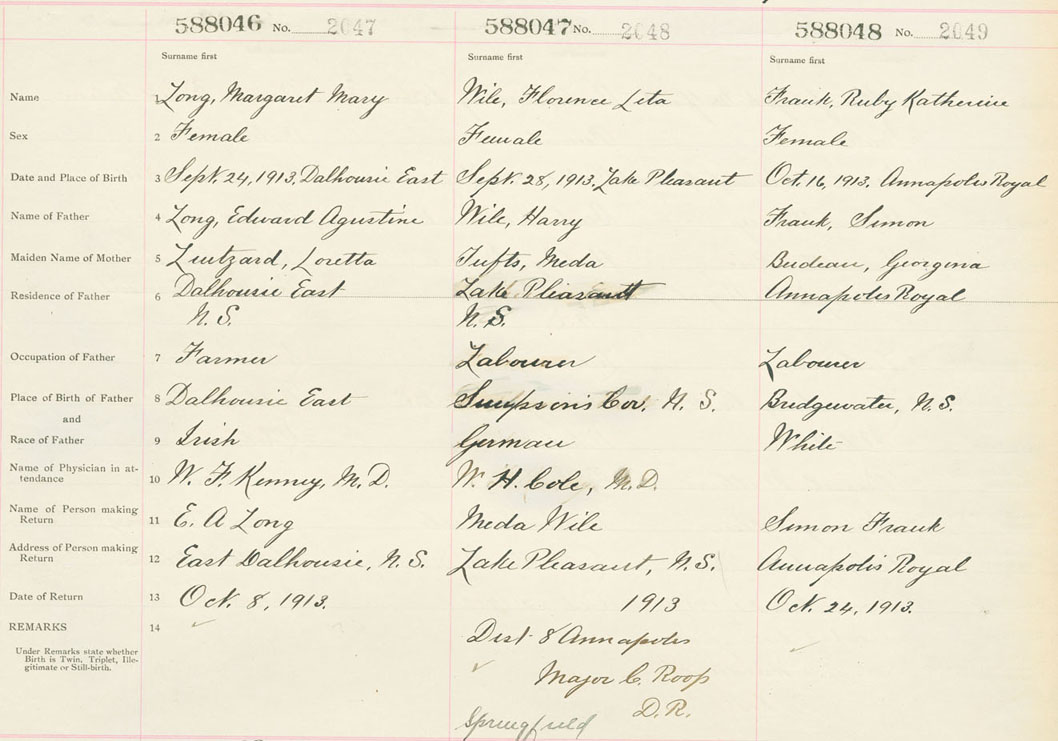 588046 No. 2047 588047 No. 2048 588048 No. 2049
Surname first Surname first Surname first
Name 1 Long, Margaret Mary Wile, Florence Leta Frank, Ruby Katherine
Sex 2 Female Female Female
Date and Place of Birth 3 Sept. 24, 1913, Dalhousie East Sept. 28, 1913, Lake Pleasant Oct. 16, 1913, Annapolis Royal
Name of Father 4 Long, Edward Agustine Wile, Harry Frank, Simon
Maiden Name of Mother 5 Loretta Tufts, Meda Georgina
Residence of Father 6 Dalhousie East Lake Pleasant Annapolis Royal
N. S. N. S.
Occupation of Father 7 Farmer Labourer Labourer
Place of Birth of Father 8 Dalhousie East Simpson's Cor. N. S. Bridgewater, N. S.
and
Race of Father 9 Irish German White
Name of Physician in at-
tendance 10 W. F. Kenney, M. D. W. H. Cole, M. D.
Name of Person making
Return 11 E. A Long Meda Wile Simon Frank
Address of Person making
Return 12 East Dalhousie, N. S. Lake Pleasant, N. S. Annapolis Royal
Date of Return 13 Oct. 8, 1913. 1913 Oct. 24, 1913.
REMARKS 14 Dist 8 Annapolis
Under Remarks state whether
Birth is Twin. Triplet, Ille-
gitimate or Still-birth.
Major C. Roop
D. R.
Springfield